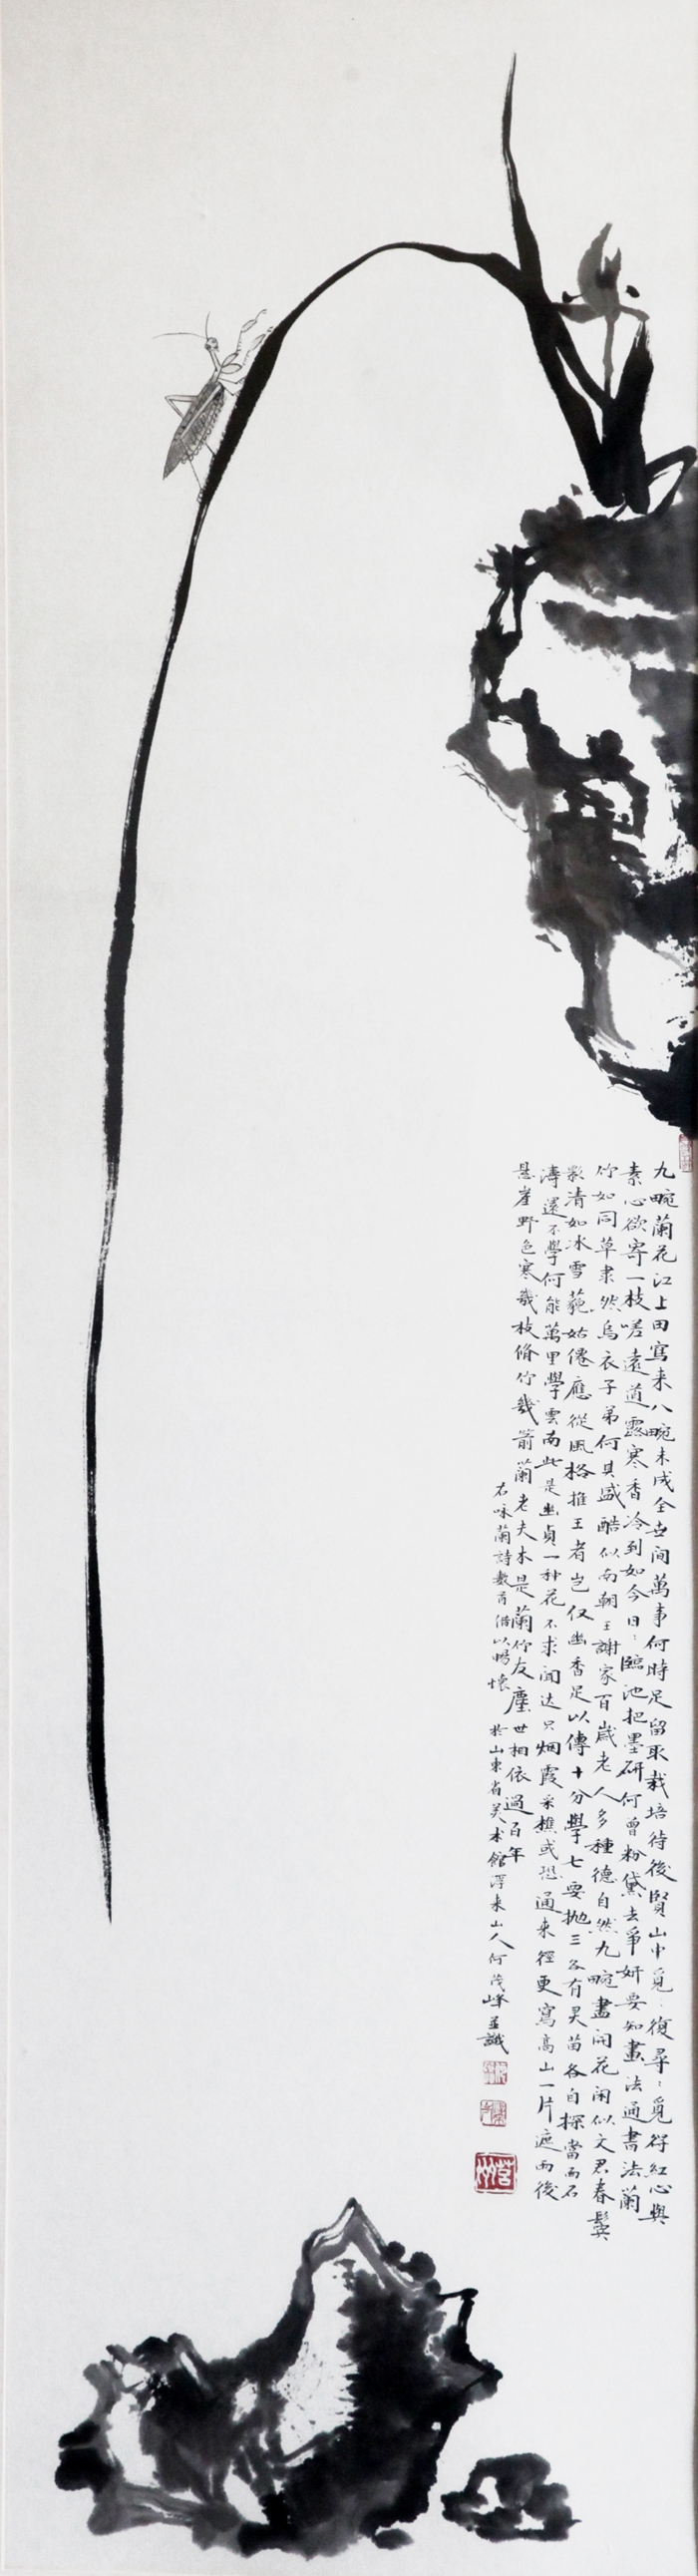 九畹蘭花江上田寫来八畹未成全世间萬事何時足留取栽培待後賢山中覓〻復尋〻覓得紅心與
素心欲寄一枝嗟遠道露寒香冷到如今日〻臨池把墨研何曾粉黛去爭妍要知畫法通書法蘭
竹如同草隶然烏衣子弟何其盛酷似南朝王謝家百歲老人多種德自然九畹盡开花闲似文君春鬓
影清如冰雪藐姑僊應從風格推王者岂仅幽香足以傳十分學七要抛三各有灵苗各自探當面石
濤還不學何能萬里學雲南此是幽貞一种花不求闻达只烟霞采樵或恐通来徑更寫高山一片遮雨後
悬崖野色寒幾枝脩竹幾箭蘭老夫本是蘭竹友塵世相依過百年
右咏蘭詩數首借以暢懷於山東省美术館浮来山人何茂峰並識
莒州